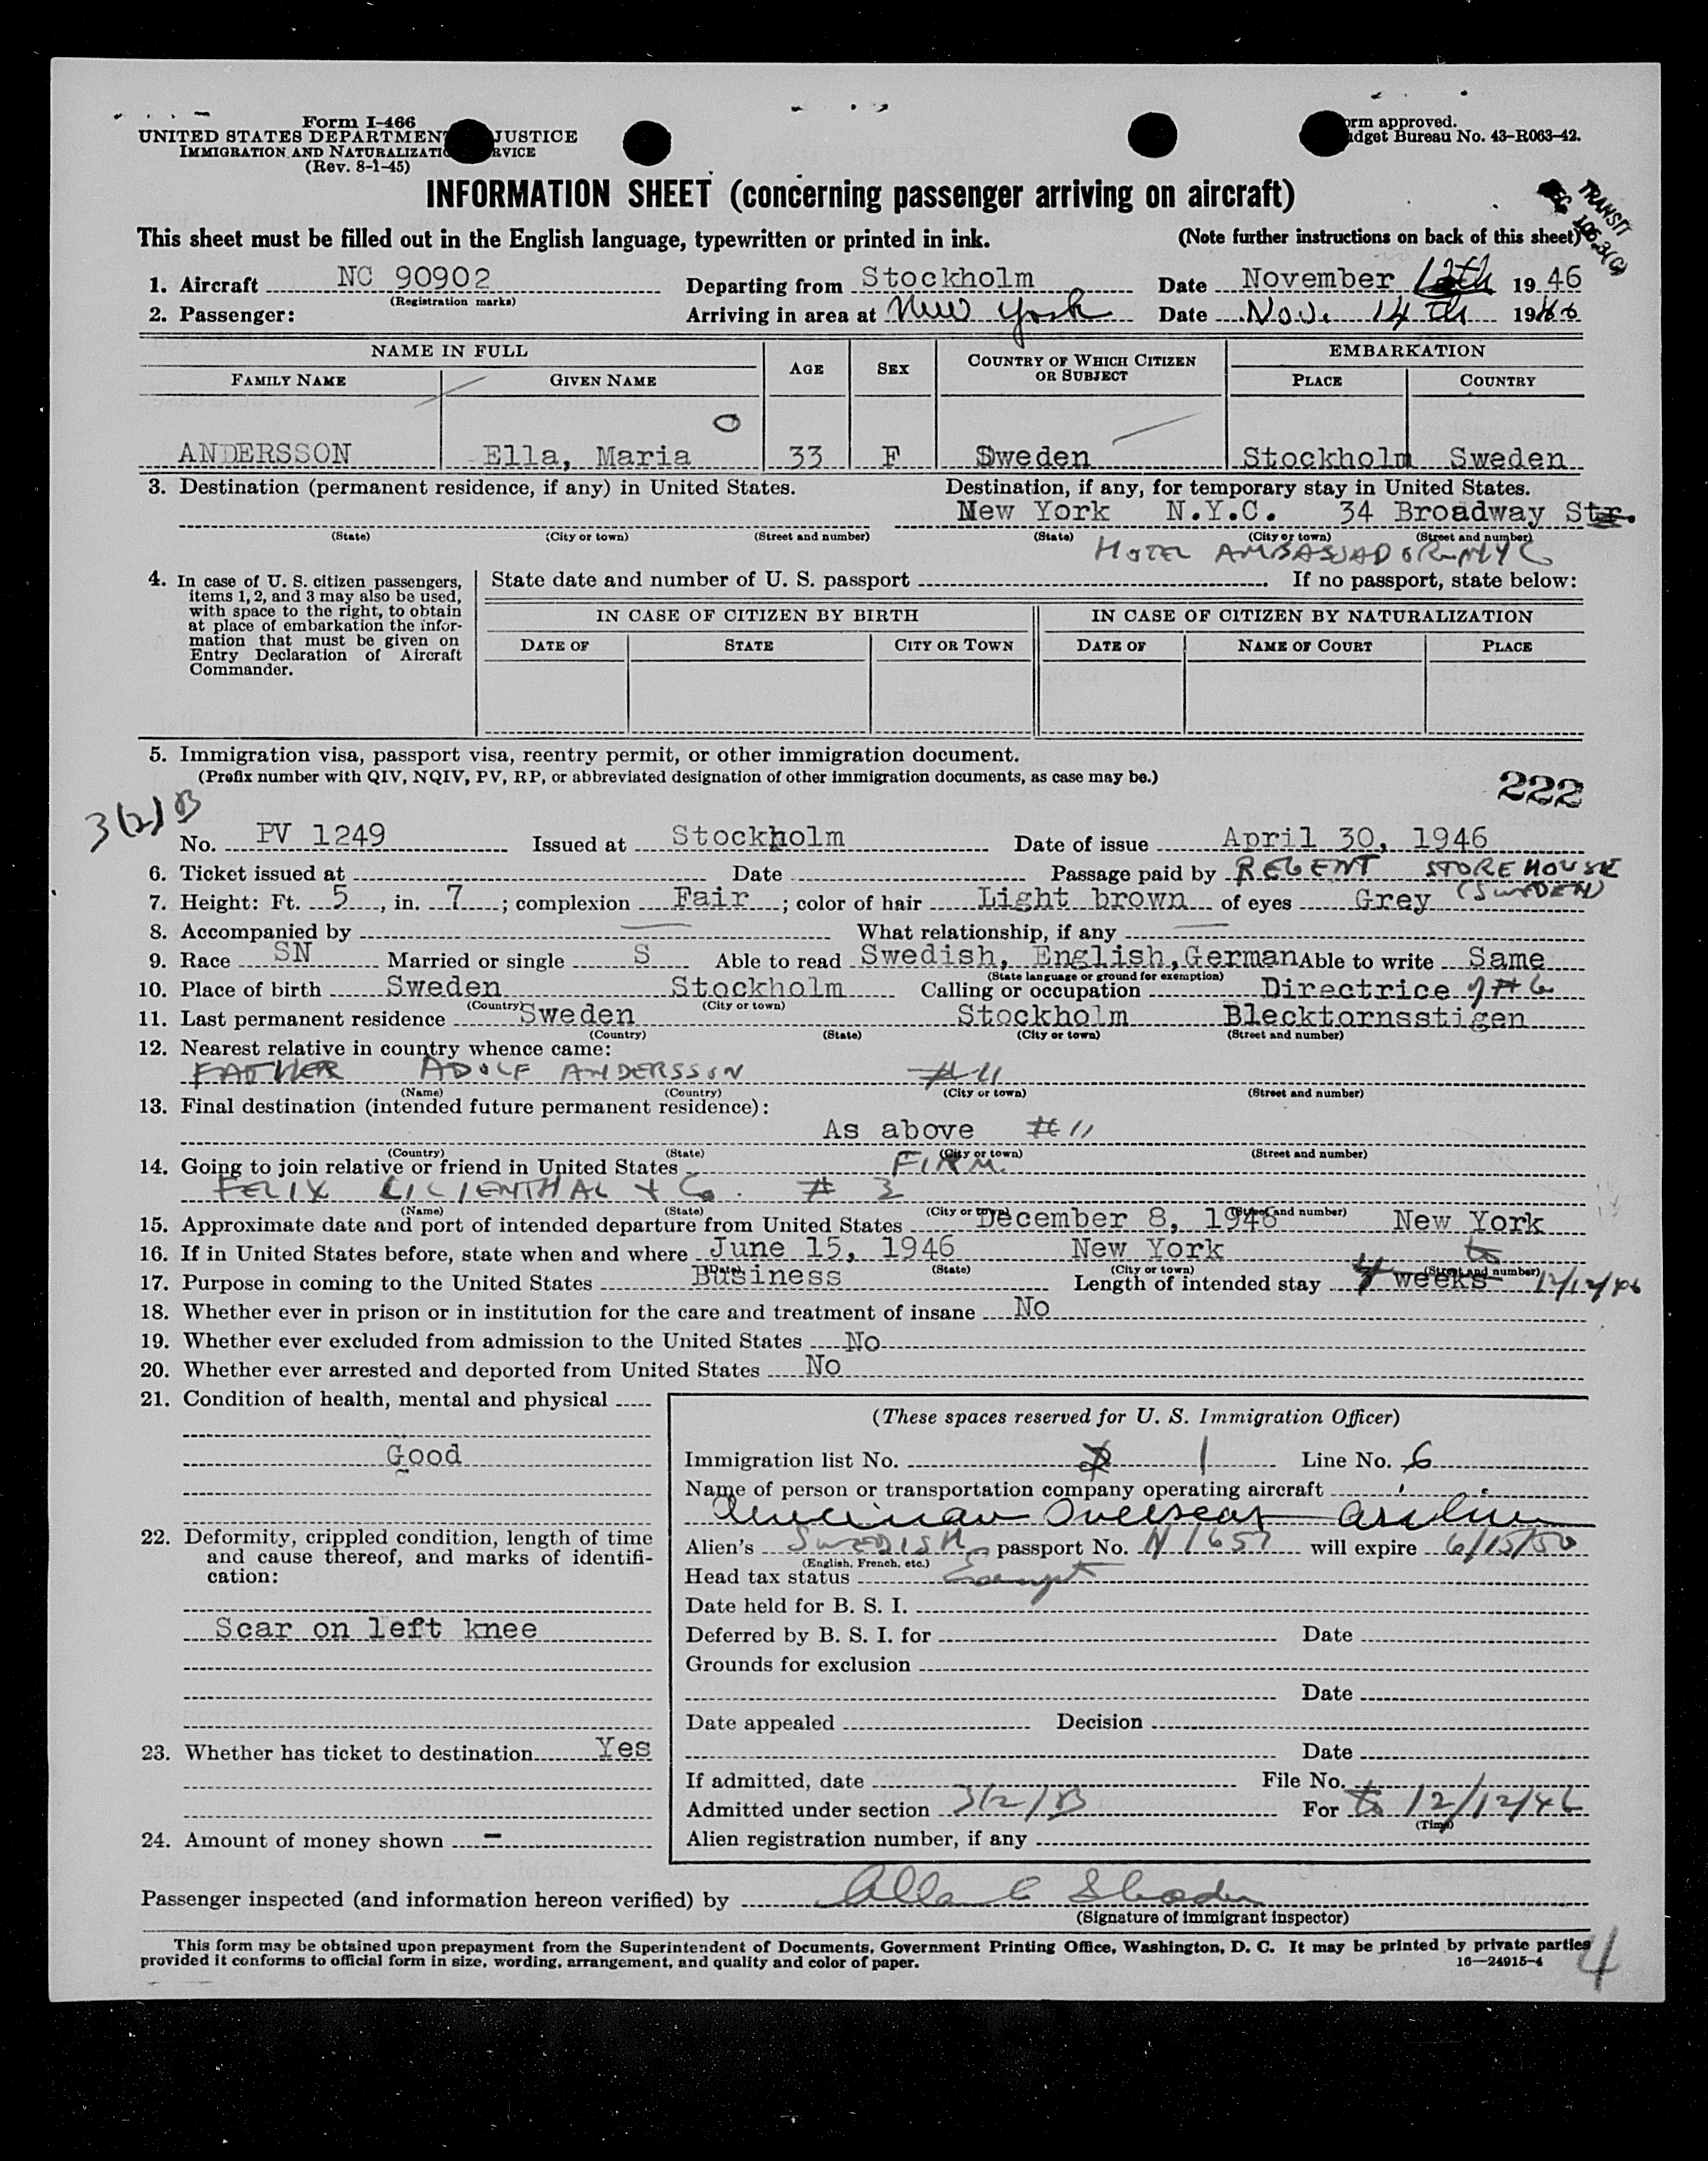 Form I-466
UNITED STATES DEPARTMENT JUSTICE
IMMIGRATION AND NATURALIZATIO RVICE
(Rev. 8-1-45)
orm approved.
dget Bureau No. 43-R063-42.
INFORMATION SHEET (concerning passenger arriving on aircraft)
TRANSIT
This sheet must be filled out in the English language, typewritten or printed in ink. (Note further instructions on back of this sheet)
1. Aircraft NC 90902 Departing from Stockholm Date November 12th 19 46
(Registration marks)
2. Passenger: Arriving in area at New York Date Nov. 14th 1946
NAME IN FULL AGE SEX COUNTRY OF WHICH CITIZEN OR SUBJECT EMBARKATION
FAMILY NAME GIVEN NAME PLACE COUNTRY
ANDERSSON Ella, Maria 33 F Sweden Stockholm Sweden
3. Destination (permanent residence, if any) in United States. Destination, if any, for temporary stay in United States.
New York N.Y.C. 34 Broadway Str.
(State) (City or town) (Street and number) (State) (City or town) (Street and number)
HOTEL AMBASSADOR NYC
4. In case of U. S. citizen passengers, items 1, 2, and 3 may also be used, with space to the right, to obtain at place of embarkation the information that must be given on Entry Declaration of Aircraft Commander.
State date and number of U. S. passport If no passport, state below:
IN CASE OF CITIZEN BY BIRTH IN CASE OF CITIZEN BY NATURALIZATION
DATE OF STATE CITY OR TOWN DATE OF NAME OF COURT PLACE
5. Immigration visa, passport visa, reentry permit, or other immigration document.
(Prefix number with QIV, NQIV, PV, RP, or abbreviated designation of other immigration documents, as case may be.)
222
3(2)B
No. PV 1249 Issued at Stockholm Date of issue April 30, 1946
6. Ticket issued at Date Passage paid by REGENT STOREHOUSE
(SWEDEN)
7. Height: Ft. 5, in. 7; complexion Fair; color of hair Light brown of eyes Grey
8. Accompanied by What relationship, if any
9. Race SN Married or single S Able to read Swedish, English, German Able to write Same
(State language or ground for exemption)
10. Place of birth Sweden Stockholm Calling or occupation Directrice
(Country) (City or town)
11. Last permanent residence Sweden Stockholm Blecktornsstigen
(Country) (State) (City or town) (Street and number)
12. Nearest relative in country whence came:
FATHER ADOLF ANDERSSON #11
(Name) (Country) (City or town) (Street and number)
13. Final destination (intended future permanent residence):
As above #11
(Country) (State) (City or town) (Street and number)
14. Going to join relative or friend in United States FIRM.
FELIX LILIENTHAL & Co. # 3
(Name) (State) (City or town) (Street and number)
15. Approximate date and port of intended departure from United States December 8, 1946 New York
16. If in United States before, state when and where June 15, 1946 New York
(Date) (State) (City or town) (Street and number)
17. Purpose in coming to the United States Business Length of intended stay 4 weeks to 12/12/46
18. Whether ever in prison or in institution for the care and treatment of insane No
19. Whether ever excluded from admission to the United States No
20. Whether ever arrested and deported from United States No
21. Condition of health, mental and physical
Good
22. Deformity, crippled condition, length of time and cause thereof, and marks of identification:
Scar on left knee
23. Whether has ticket to destination Yes
24. Amount of money shown -
(These spaces reserved for U. S. Immigration Officer)
Immigration list No. 1 Line No. 6
Name of person or transportation company operating aircraft
American Overseas Airline
Alien's SWEDISH passport No. N 1657 will expire 6/15/50
(English, French, etc.)
Head tax status Exempt
Date held for B. S. I.
Deferred by B. S. I. for Date
Grounds for exclusion
Date
Date appealed Decision
Date
If admitted, date File No.
Admitted under section 3(2)B For to 12/12/46
(Time)
Alien registration number, if any
Passenger inspected (and information hereon verified) by
(Signature of immigrant inspector)
This form may be obtained upon prepayment from the Superintendent of Documents, Government Printing Office, Washington, D. C. It may be printed by private parties
provided it conforms to official form in size, wording, arrangement, and quality and color of paper. 16—24915-4
4